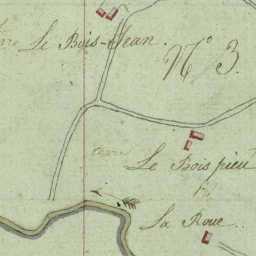 Le Bois-Jean.
N.° 3.
Le Bois pieu
La Roue.